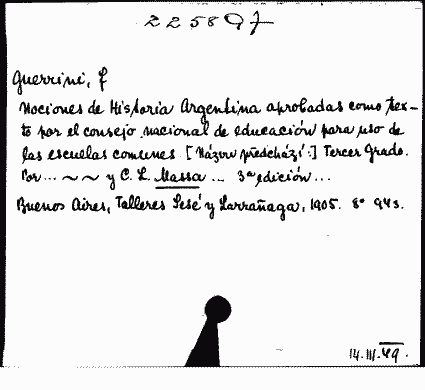 225897
Guerrini, f
Nociones de Historia Argentina aprobadas como tex-
to por el consejo nacional de educación para uso de
las escuelas comunes [Názvu předchází:] Tercer grado.
Por... ~ ~ y C. L. Massa... 3ª edición...
Buenos Aires, Talleres Sesé y Larrañaga, 1905. 8° 94s.
14.III.49.